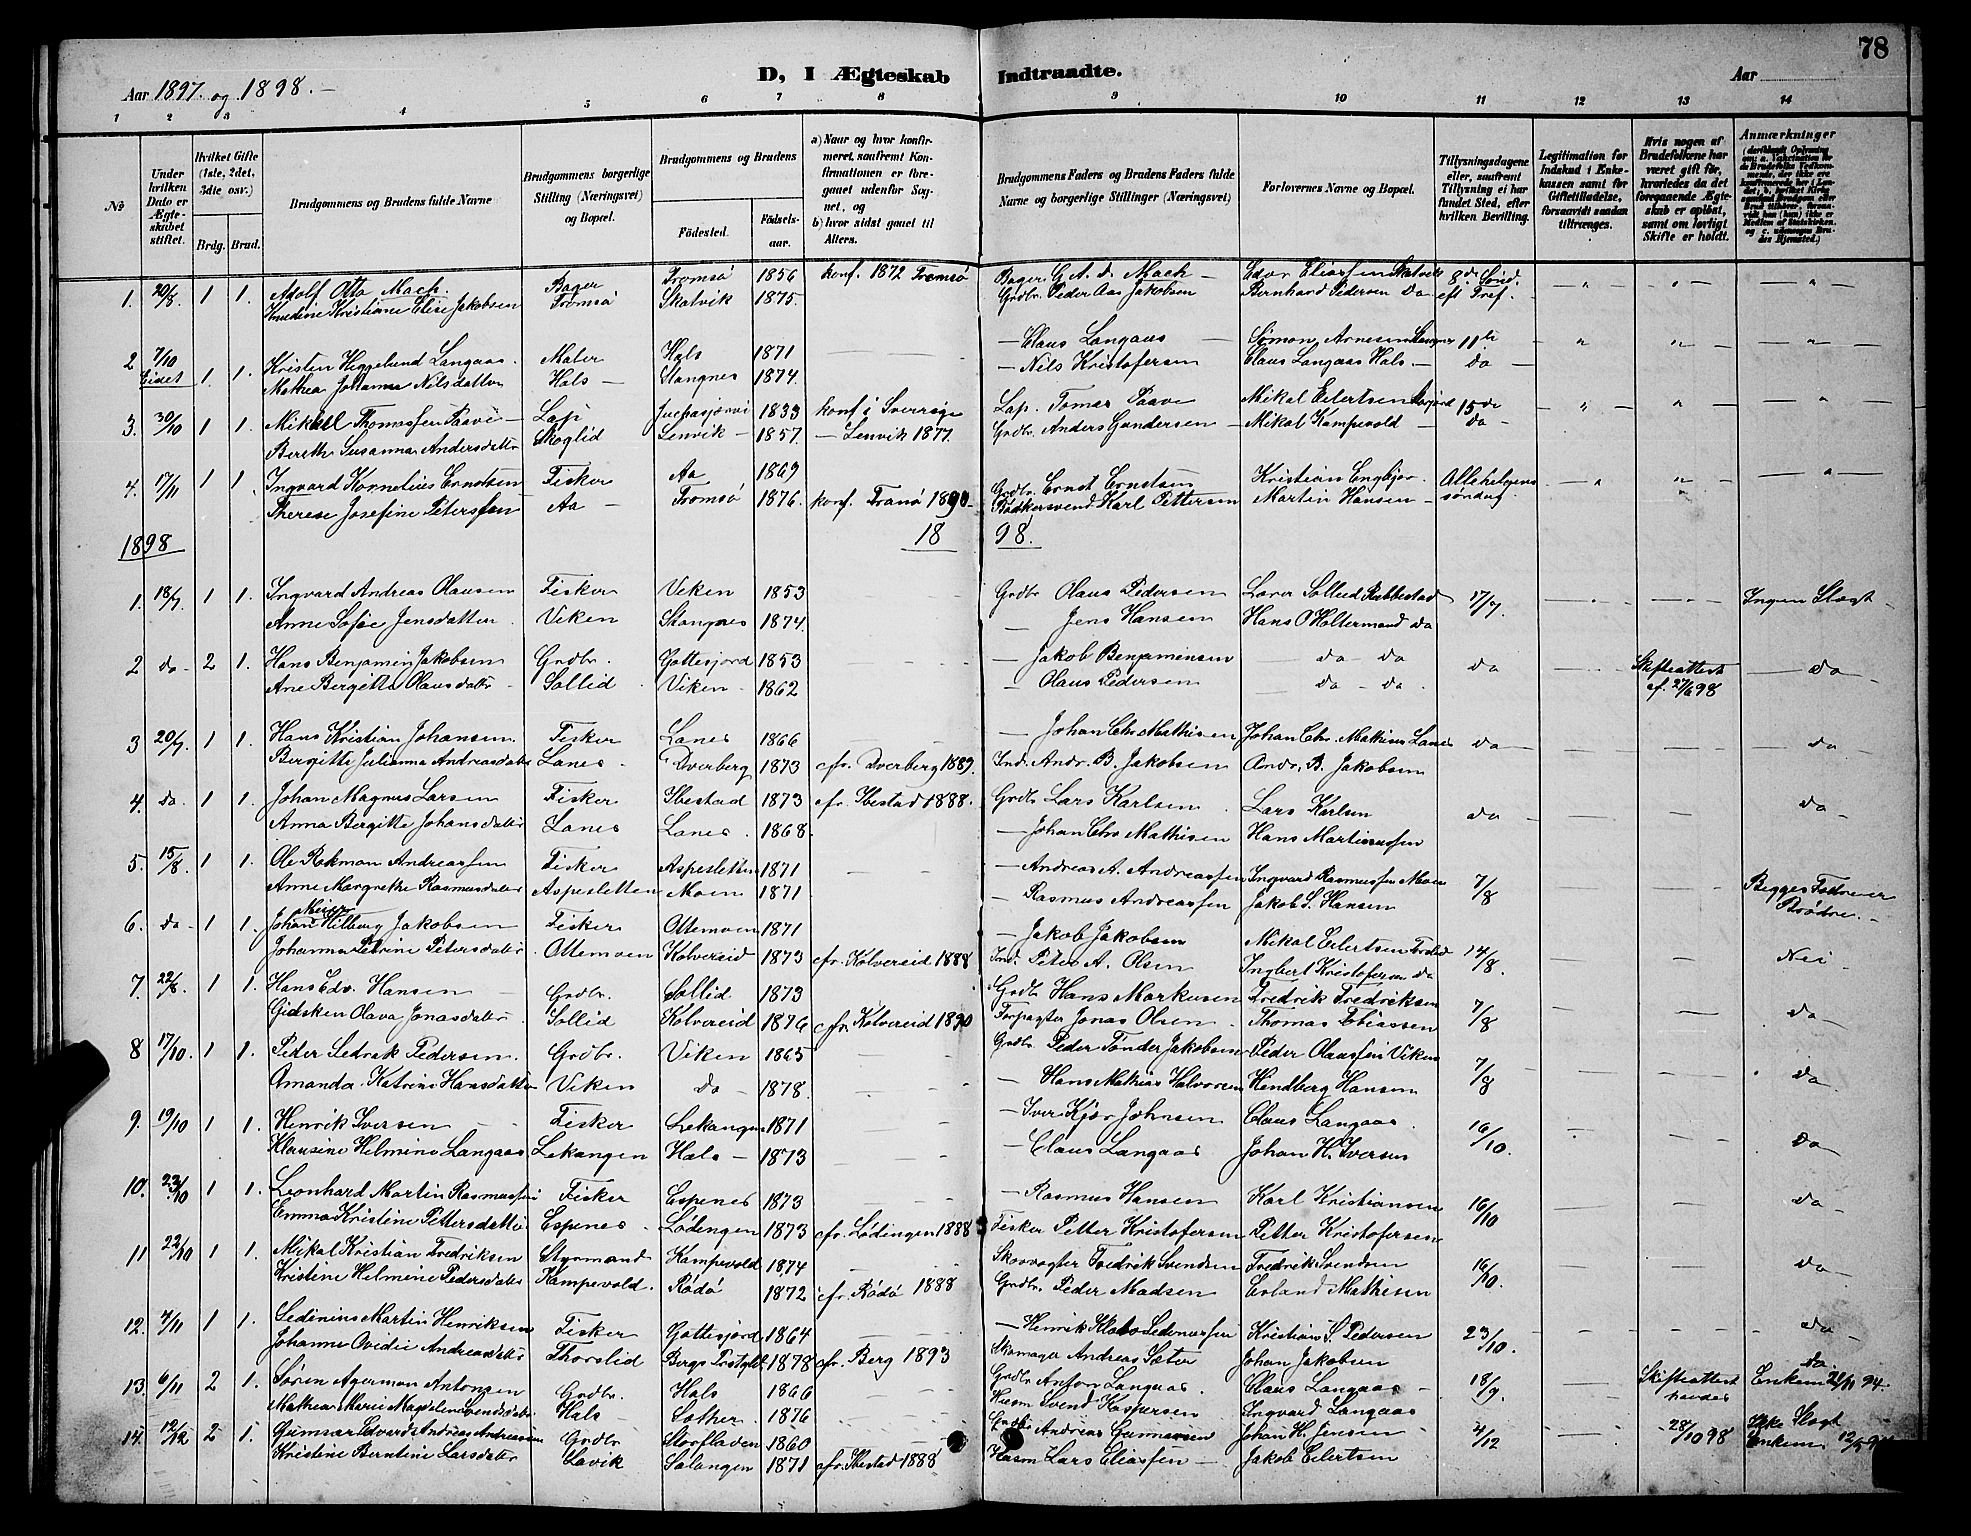 78
Aar 1897. og 1898. —
D, I Ægteskab Indtraadte.
Aar
1 2 3 4 5 6 7 8 9 10 11 12 13 14
No
Under hvilken Dato er Ægteskabet stiftet.
Hvilket Gifte (1ste, 2det, 3die osv.)
Brdg. Brud.
Brudgommens og Brudens fulde Navne
Brudgommens borgerlige Stilling (Næringsvei) og Bopæl.
Brudgommens og Brudens
Fødested. Fødselsaar.
a) Naar og hvor konfirmeret, saafremt Konfirmationen er foregaaet udenfor Sognet, og
b) hvor sidst gaaet til Alters.
Brudgommens Faders og Brudens Faders fulde Navne og borgerlige Stillinger (Næringsvei)
Forlovernes Navne og Bopæl.
Tillysningsdagene eller, saafremt Tillysning ei har fundet Sted, efter hvilken Bevilling.
Legitimation for Indskud i Enkekassen samt for Giftetilladelse, forsaavidt saadan tiltrænges.
Hvis nogen af Brudefolkene har været gift før, hvorledes da det foregaaende Ægteskab er opløst, samt om lovligt Skifte er holdt.
Anmærkninger
1. 20/8 1 1. Adolf Otto Mack. Bager Tromsø 1856 konf. 1872 Tromsø Bager G. A. d. Mack — 8de Sønd.
Knudine Kristiane Elise Jakobsen Tromsø Skatvik 1875. Grdbr. Peder Aas Jakobsen Bernhard Pedersen do eft Tref.
2 7/10 1. 1. Kristen Heggelund Langaas. Maler Hals 1871 — Claus Langaas Simon Arnesen 11te
Eidet Mathea Johanna Nilsdatter Hals — Stangnes 1874. — Nils Kristofersen Claus Langaas Hals. — do
3. 30/10 1 1. Mikkel Thomassen Paavi — Lap 1833 konf i Sverrige Lap. Tomas Paave Mikal Eilertsen 15de
Bereth Susanna Andersdatter Skoglid Lenvik — 1857. — Lenvik 1877. Grdbr. Anders Gundersen — Mikal Kampevold — do —
4. 17/11 1 1. Ingvard Kornelius Ernstsen Fisker Aa 1869 Grdbr. Ernst Ernstsen Kristian Engkjær. Allehelgens
Therese Josefine Peterssen Aa — Tromsø 1876. konf. Tranø 1890 — Bødkersvend Karl Pettersen Martin Hansen — søndag
1898 1898.
1. 18/7. 1 1. Ingvard Andreas Olausen Fisker Viken 1853 Grdbr Olaus Pedersen Lorer Sollied Rubbestad 17/7. Ingen Slægt
Anne Sofie Jensdatter Viken Stangnes 1874. — Jens Hansen Hans O Holtermand do
2 do — 2 1. Hans Benjamin Jakobsen Grdbr. Gottesjord 1853 — Jakob Benjaminsen — do — do do Skifteattest do
Ane Bergitte Olausdatter Sollid Viken — 1862 — Olaus Pedersen — do — do. af. 27/6 98
3 20/7. 1 1. Hans Kristian Johansen. Fisker Lanes 1866 — Johan Chr Mathisen Johan Chr. Mathisen Lanes do — do
Bergitte Julianna Andreasdatter Lanes. Dverberg 1873 cfr. Dverberg 1889. Ind. Andr. B. Jakobsen Andr. B. Jakobsen
4. do. 1 1. Johan Magnus Larsen Fisker Ibestad 1873 cfr Ibestad 1888. Grdbr Lars Karlsen Lars Karlsen do — do
Anna Bergitte Johansdatter Lanes Lanes. 1868. — Johan Chr Mathisen Hans Martinussen
5. 15/8. 1 1. Ole Rokman Andreassen Fisker Aspesletten 1871 — Andreas A. Andreassen Ingvard Rasmussen Moen 7/8 Begges Fædre er
Anne Margrethe Rasmusdatter Aspesletten Moen 1871 — Rasmus Andreassen Jakob S. Hansen Brødre. —
6. do — 1 1. Johan Meier Hilberg Jakobsen Fisker Ottemoen 1871 — Jakob Jakobsen Mikal Eilertsen 14/8. Nei
Johanna Petrine Petersdatter. Ottemoen Kolvereid 1873 cfr. Kolvereid 1888 Ind. Peter A. Olsen Ingbert Kristofersen do
7. 22/8 1 1. Hans Edv. Hansen — Grdbr. Sollid 1873 Grdbr Hans Markusen Fredrik Fredriksen 7/8 do
Gidsken Olava Jonasdatter. Sollid Kolvereid 1876 cfr. Kolvereid 1890 Forpagter Jonas Olsen — Thomas Tobiassen
8 17/10. 1 1. Peder Sedrak Pedersen. Grdbr. Viken 1865 Grdbr. Peder Tønder Jakobsen Peder Olaussen Viken 7/8 do
Amanda Katrine Hansdatter Viken do — 1878. — Hans Mathias Halvorsen Hendberg Hansen
9. 19/10 1 1. Henrik Iversen — Fisker Lekangen 1871 — Iver Kjær Johnsen Claus Langaas. 16/10. do
Klausine Helmine Langaas Lekangen Hals — 1873 — Claus Langaas Johan H. Iversen
10. 23/10 1 1. Leonhard Martin Rasmussen Fisker Espenes 1873 — Rasmus Hansen Karl Kristiansen 16/10 do
Emma Kristine Pettersdatter Espenes. Lødingen 1873 cfr. Lødingen 1888 Fisker Petter Kristofersen Petter Kristofersen
11 22/10 1 1. Mikal Kristian Fredriksen Styrmand Kampevold 1874 Skovvogter Fredrik Svendsen Fredrik Svendsen 16/10. do
Kristine Helmine Pedersdatter Kampevold. Rødø 1872 cfr. Rødø 1888 Grdbr. Peder Madsen Erland Mathisen
12. 4/11 1 1. Sedinius Martin Henriksen Fisker Gottesjord 1864 — Henrik Klobo Kristian S. Pedersen 23/10. do
Johanne Ovidie Andreasdatter Thorslid Bergs Prstgld 1878 cfr. Berg 1893 Skomager Andreas Sæter Johan Jakobsen
13. 6/11 2 1. Søren Agerman Antonsen Grdbr. Hals 1866 Grdbr Anton Langaas. Claus Langaas 18/9. Skifteattest do
Mathea Marie Magdelena Svendsdatter Hals — 1876 Husm Svend Kaspersen Ingvard Langaas havdes Enkem 21/11 94.
14. 12/12 2 1. Gunnar Edvard Andreas Andreassen Grdbr Storfladen 1860 Grdbr Andreas Gunnarsen Johan H. Jensen — 4/12 28/10 98 Ikke Slægt
Kristine Berntine Larsdatter Lavik Salangen 1871 cfr. Ibestad 1888 Husm Lars Eliassen — Jakob Eilertsen Enkem 12/